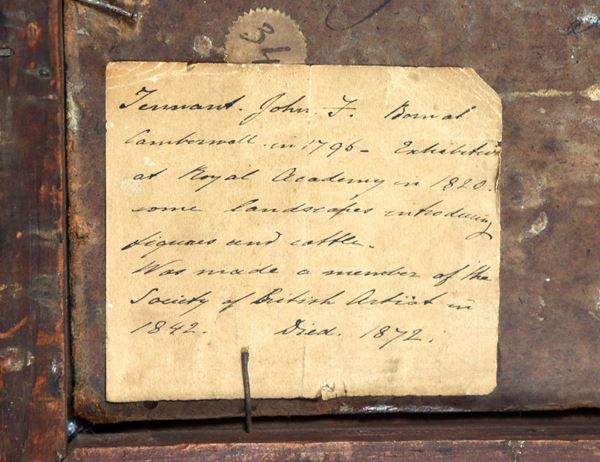 34
Tennant. John. F. Born at
Camberwell. in 1796 - Exhibited
at Royal Academy in 1820.
some landscapes introducing
figures and cattle.
Was made a member of the
Society of British Artist in
1842. Died. 1872.